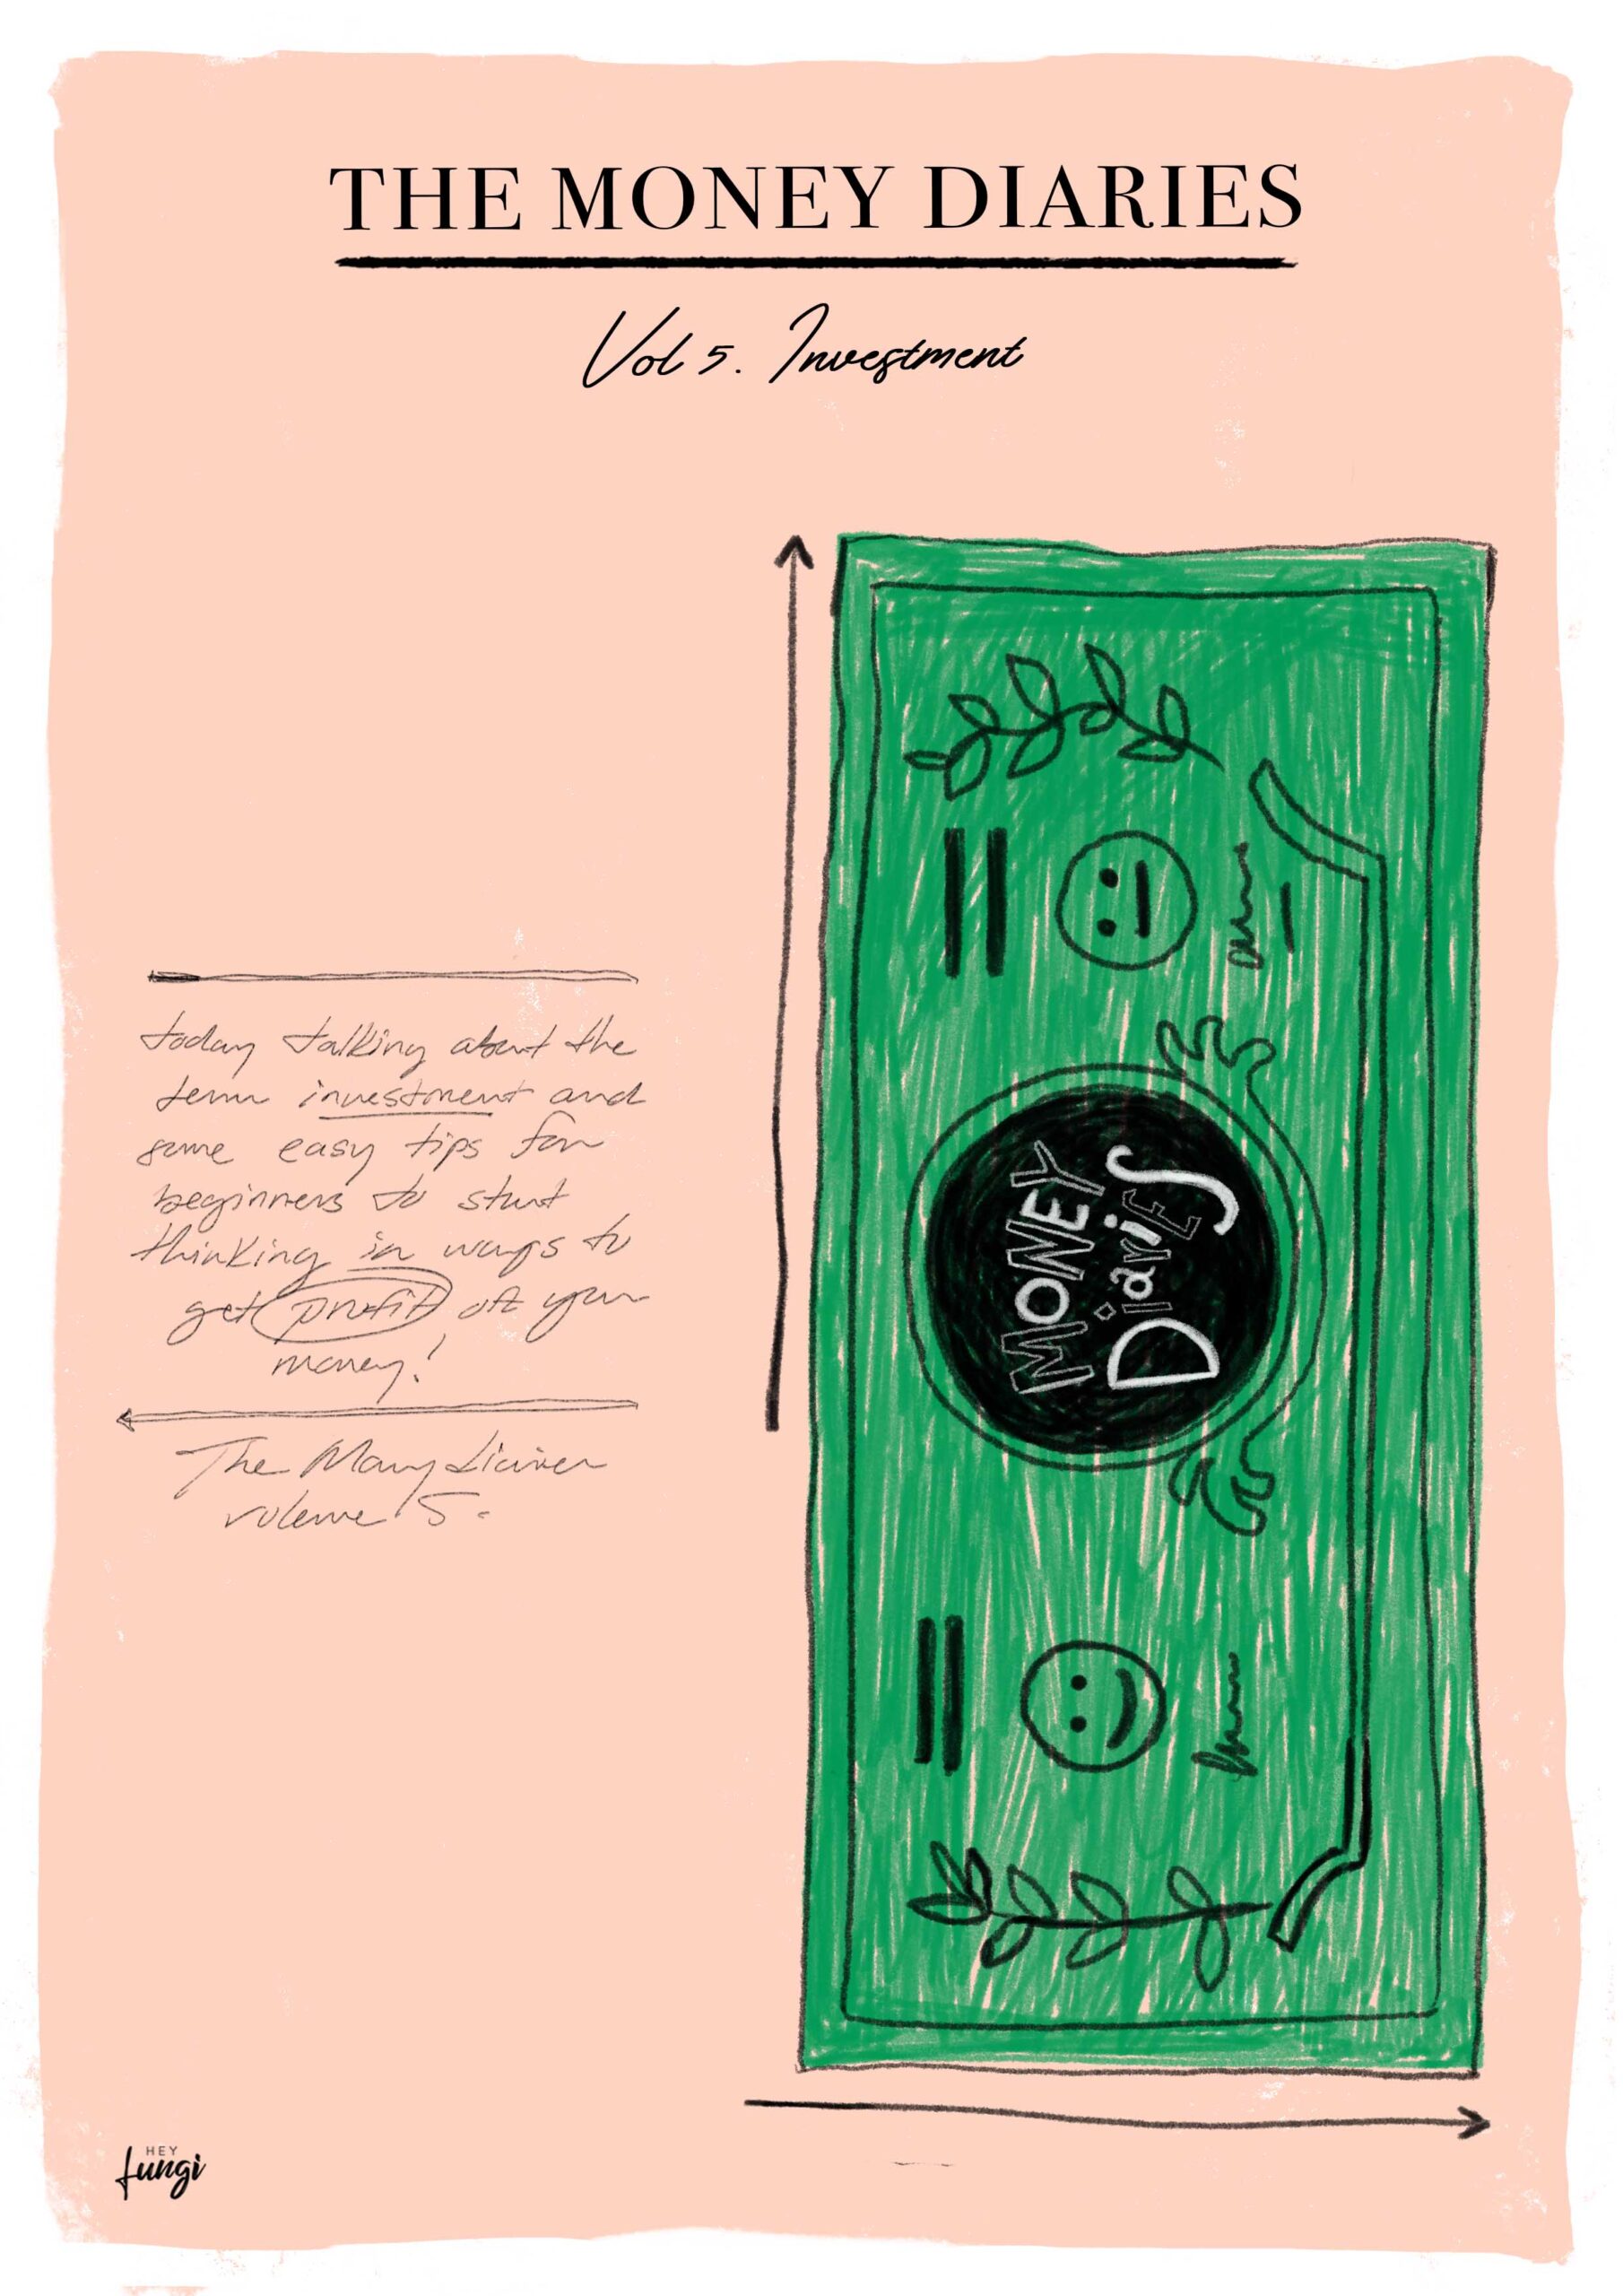 THE MONEY DIARIES
Vol 5. Investment
today talking about the
term investment and
some easy tips for
beginners to start
thinking in ways to
get profit of your
money!
The Money Diaries
volume 5.
MONEY
DiariES
HEY
fungi